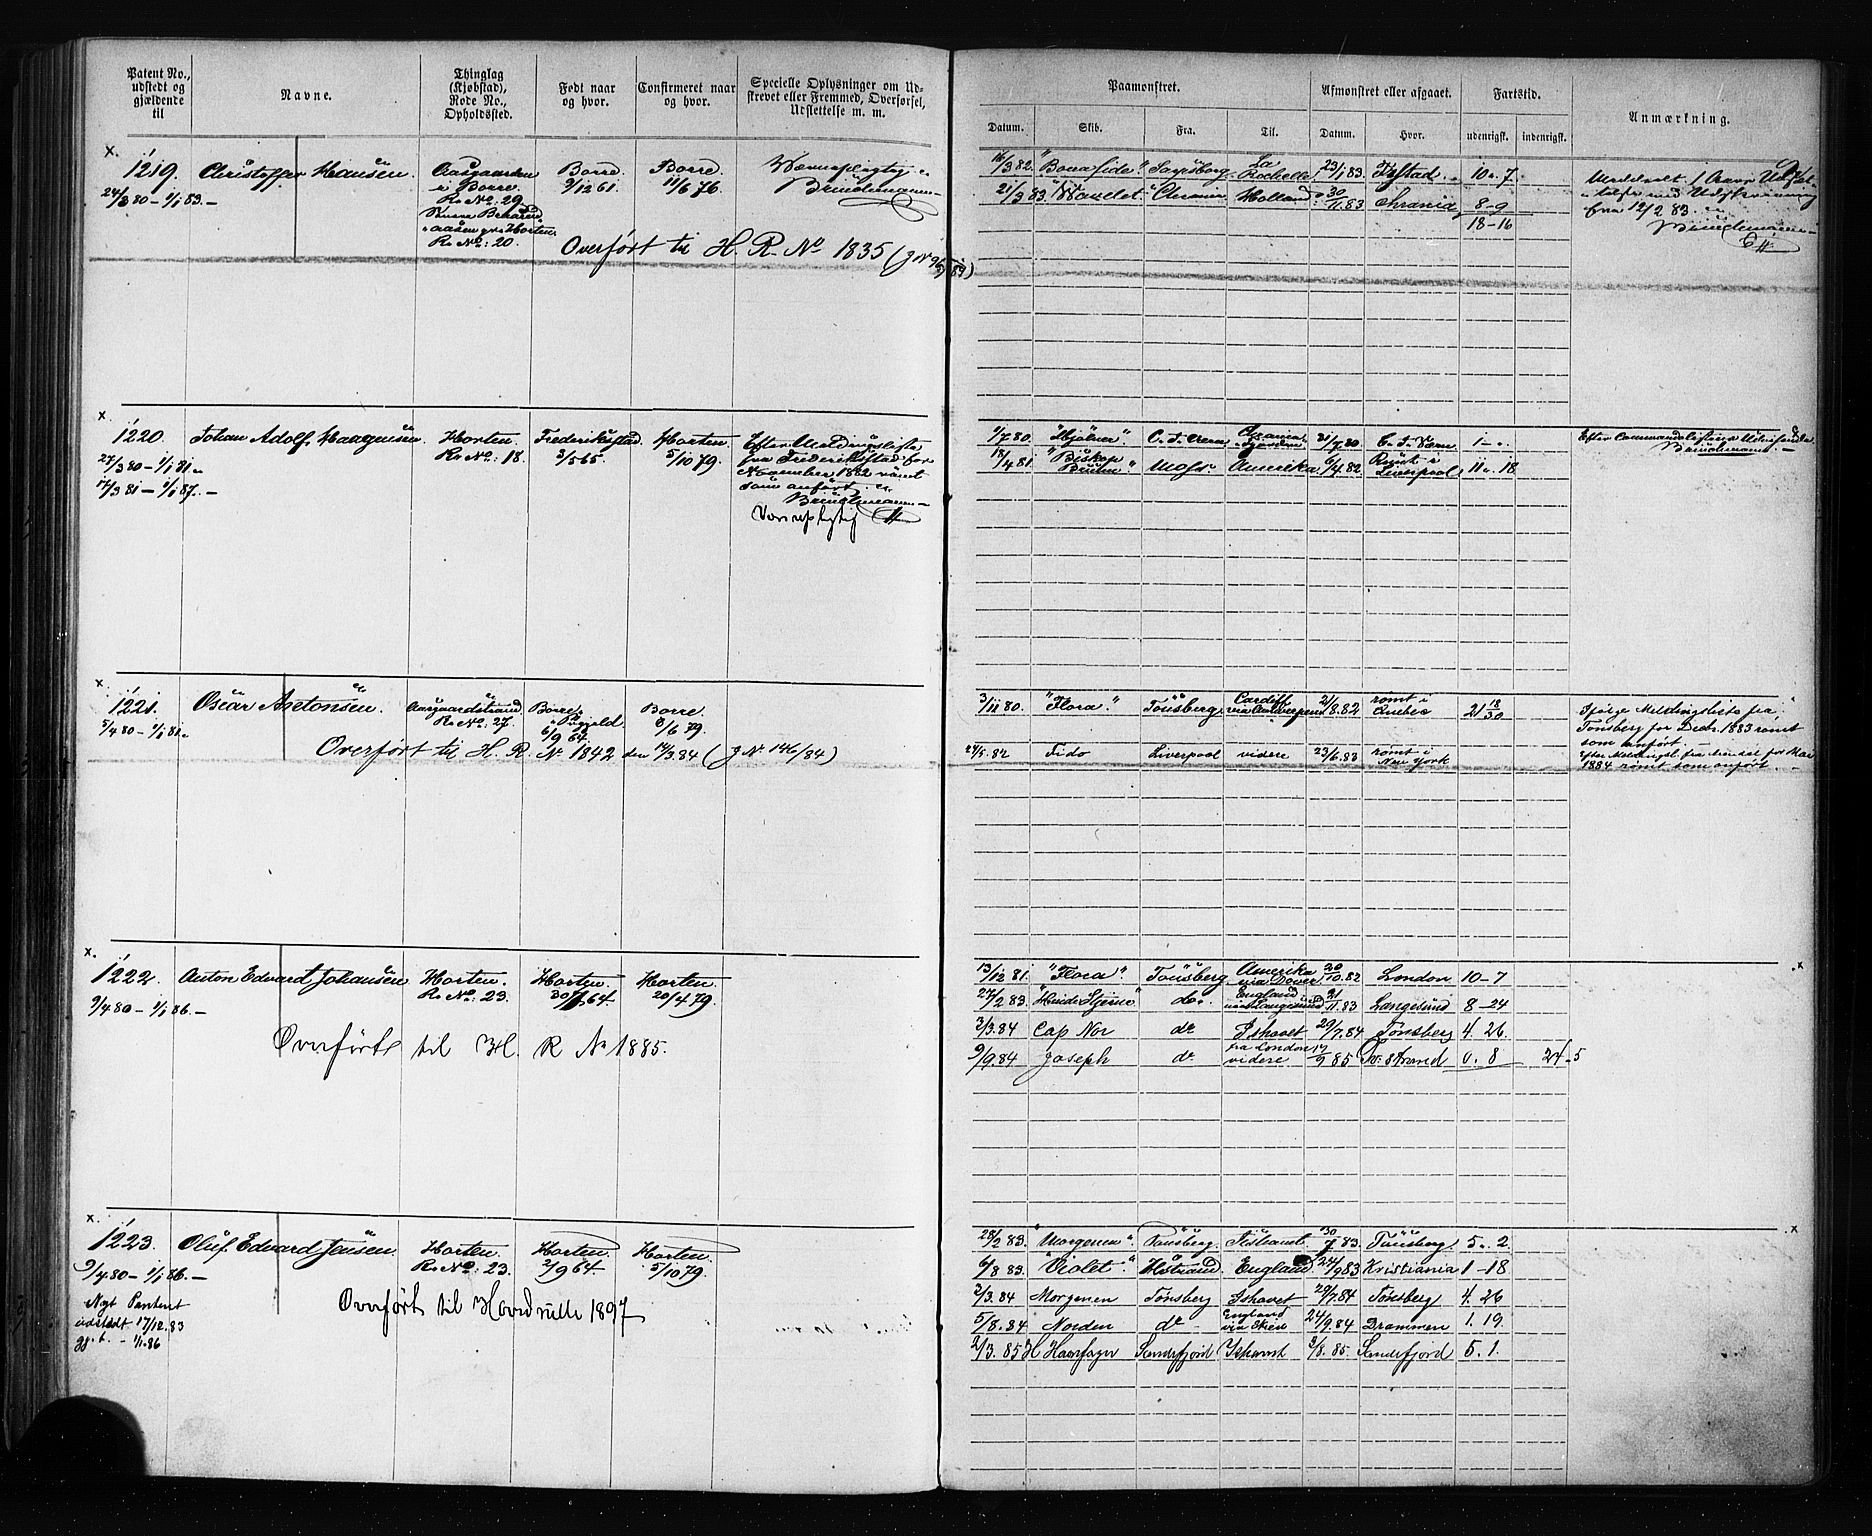 Patent No., udstedt og gjældende til
Navne.
Thinglag (Kjøbstad), Rode No., Opholdssted.
Født naar og hvor.
Confirmeret naar og hvor.
Specielle Oplysninger om Udstrevet eller Fremmed, Overførsel, Udslettelse m. m.
Paamønstret.
Datum.
Skib.
Fra.
Til.
Afmønstret eller afgaaet.
Datum.
Hvor.
Fartstid.
udenrigsk.
indenrigsk.
Anmærkning.
x.
1219.
24/3 80 – 1/1 83. –
Christoffer Hansen.
Aasgaarden
i Borre.
R. No. 29.
Horten.
R. No: 20.
Borre.
9/12 61.
Borre.
11/6 76.
Værnepligtig
Overført til H. R. No 1835
16/3 82. "Bonafide" Sarpsborg La Rochelle 23/1 83. 10 – 7.
21/3 83. Holland 30/11 83 Chrania 8 – 9
18 – 16
fra 12/2 83.
x.
1220.
27/3 80 – 1/1 81
17/3 81 – 1/1 87. –
Johan Adolf Haagensen
Horten.
R. No: 18.
Frederikstad.
3/5 65.
Horten
5/10 79.
Efter Meldingsliste
fra Frederikstad for
November 1882 rømt
som anført.
Værnepligtig
1/7 80. "Mjølner". C. J. Værn 31/7 80. C. J. Værn 1 – .
18/4 81. "Biskop Brun" Moss. Amerika 6/4 82. Rømt i Liverpool 11 . 18
x.
1221.
5/4 80 – 1/1 81.
Oscar Antonsen.
Aasgaardstrand.
R. No. 27.
Borre
6/9 64.
Borre.
8/6 79.
Overført til H. R. No 1842 den 14/3 84 (J No 146/84)
3/11 80. "Flora" Tønsberg. Cardiff 21/8 82 rømt i Quebec 21 18/30
27/5 82 Fido Liverpool videre 23/6 83 rømt i New York
Ifølge Meldingsliste fra
Tønsberg for Decbr. 1883 rømt
som anført.
1884 rømt som anført.
x.
1222.
9/4 80 – 1/1 86. –
Anton Edvard Johansen
Horten.
R. No: 23.
Horten.
64.
Horten.
20/4 79.
Overført til H. R No 1885.
13/12 81. "Flora". Tønsberg. Amerika via Dover 20/10 82 London 10 – 7
27/2 83. do. England 83 Langesund 8 – 24
3/3. 84 Cap Nor do Ishavet 29/7. 84 Tønsberg 4. 26.
9/9. 84 Joseph do fra London videre 85 0. 8 24 – 5
x.
1223.
9/4 80 – 1/1 86. –
Nyt Patent
udstedt 17/12. 83
1/1. 86
Oluf Edvard Jensen.
Horten.
R. No: 23.
Horten.
2/9 64.
Horten.
5/10 79.
Overført til Hovedrulle 1897
28/2 83. "Morgenen". Tønsberg. 83. Tønsberg. 5. 2.
6/8 83. "Violet." England. 24/9 83 Kristiania 1 – 18
3/3. 84 Morgenen Tønsberg Ishavet 29/7. 84 Tønsberg 4. 26
5/8. 84 Norden do England via Skien 24/9. 84 Drammen 1. 19.
2/3. 85 H Haarfager Sandefjord Ishavet 3/8. 85. Sandefjord 5. 1.